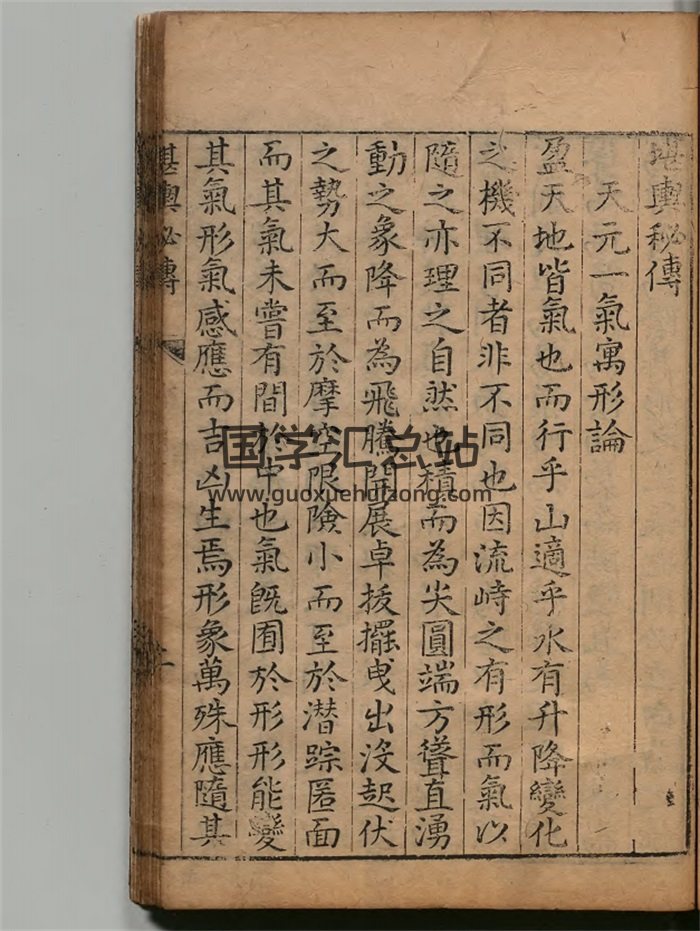 堪輿秘傳
天元一氣寓形論
盈天地皆氣也而行乎山適乎水有升降變化
之機不同者非不同也因流峙之有形而氣以
隨之亦理之自然也積而為尖圓端方聳直湧
動之象降而為飛騰開展卓拔擺曳出沒起伏
之勢大而至於摩空限險小而至於潜踪匿面
而其氣未嘗有間於中也氣既囿於形形能變
其氣形氣感應而吉凶生焉形象萬殊應隨其
堪輿秘傳
上
国学汇总站
www.guoxuehuizong.com